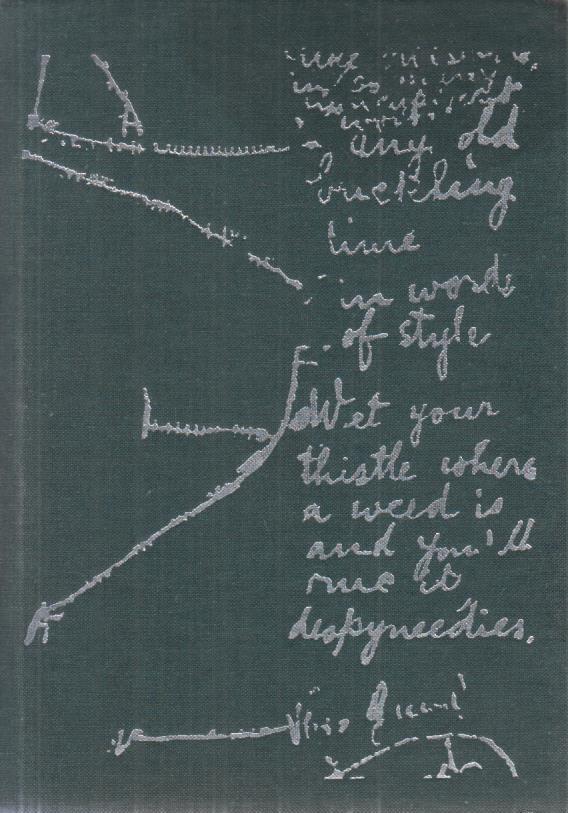 in so many
any old
buckling
time
in words
of style
Wet your
thistle where
a weed is
and you'll
rue it
despyneedies.